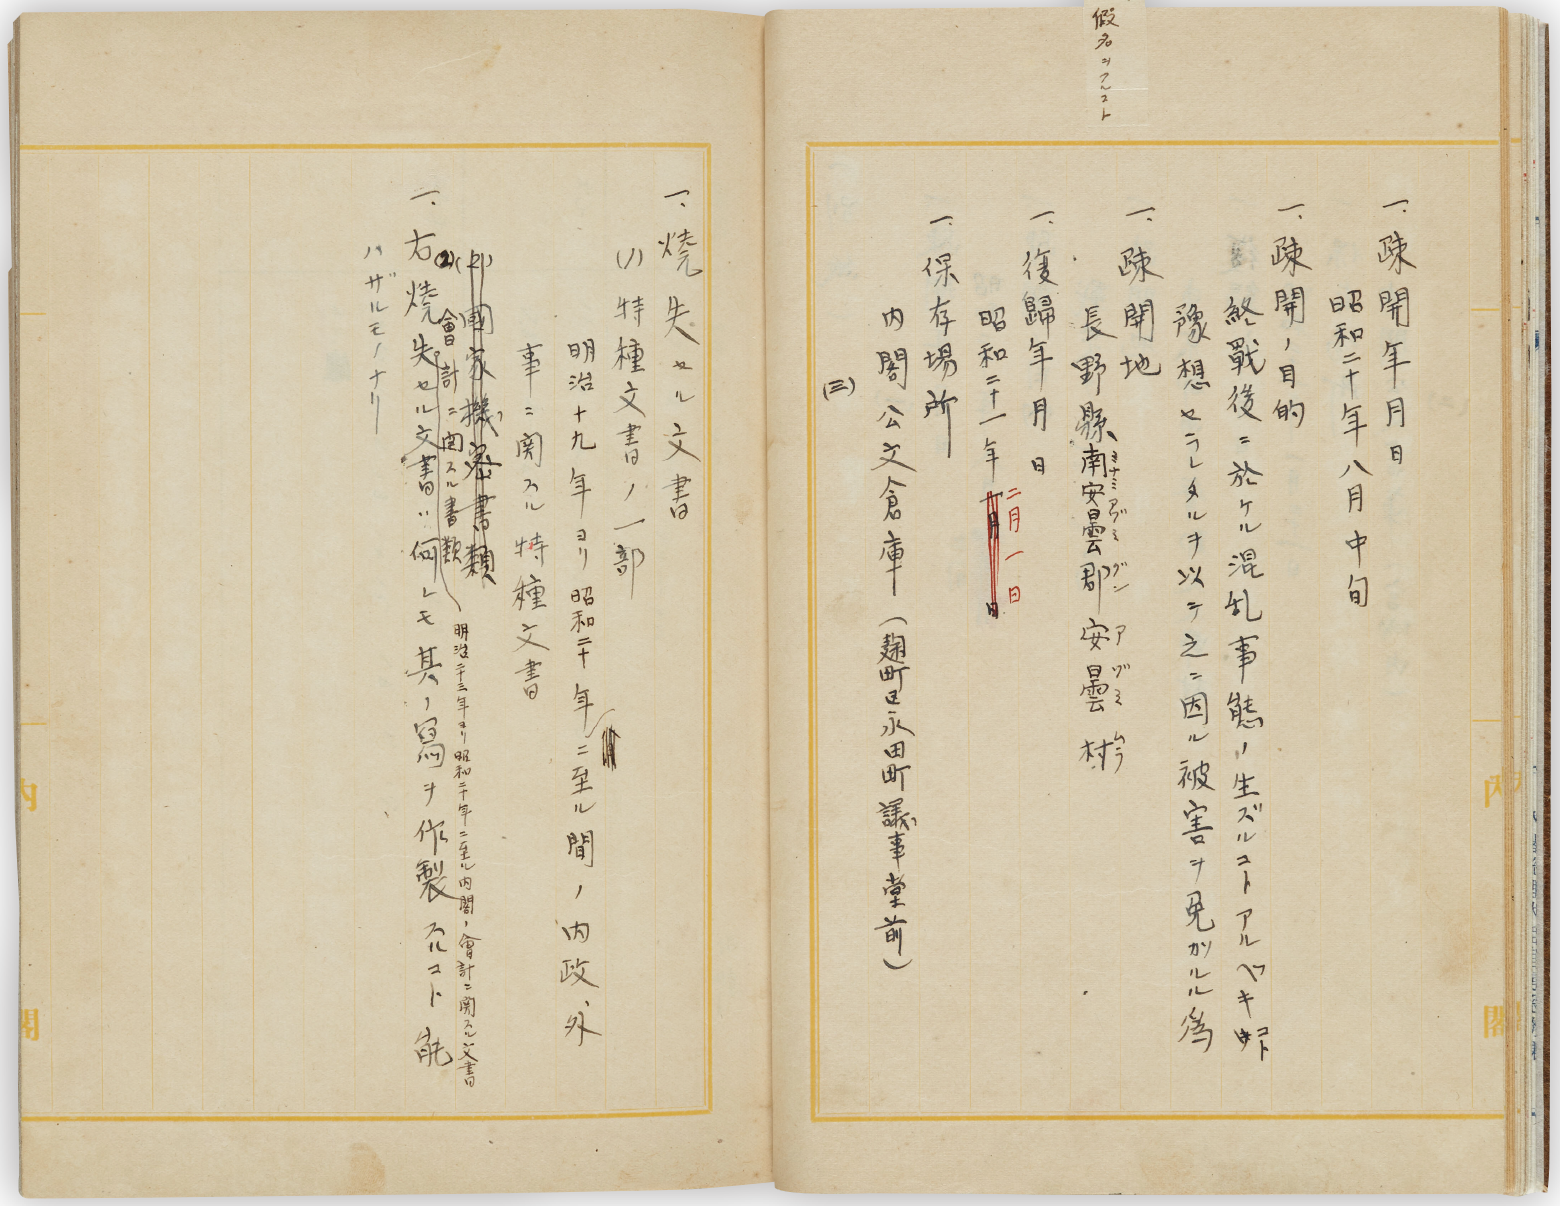 假名ヲフルコト
一、疎開年月日
昭和二十年八月中旬
一、疎開ノ目的
終戰後ニ於ケル混乱事態ノ生ズルコトアルベキコト
豫想セラレタルヲ以テ之ニ因ル被害ヲ免ガルル為
一、疎開地
長野縣南安曇郡安曇村
ミナミアヅミグン アヅミムラ
一、復歸年月日
昭和二十一年二月一日
月 日
一、保存場所
内閣公文倉庫(麹町区永田町議事堂前)
(三)
一、燒失セル文書
(1)特種文書ノ一部
明治十九年ヨリ昭和二十年ニ至ル間ノ内政、外
事ニ関スル特種文書
(2)國家機密書類
(2)會計ニ関スル書類
明治二十三年ヨリ昭和二十年ニ至ル内閣ノ會計ニ関スル文書
一、右燒失セル文書ハ何レモ其ノ寫ヲ作製スルコト能
ハザルモノナリ
内閣
内閣